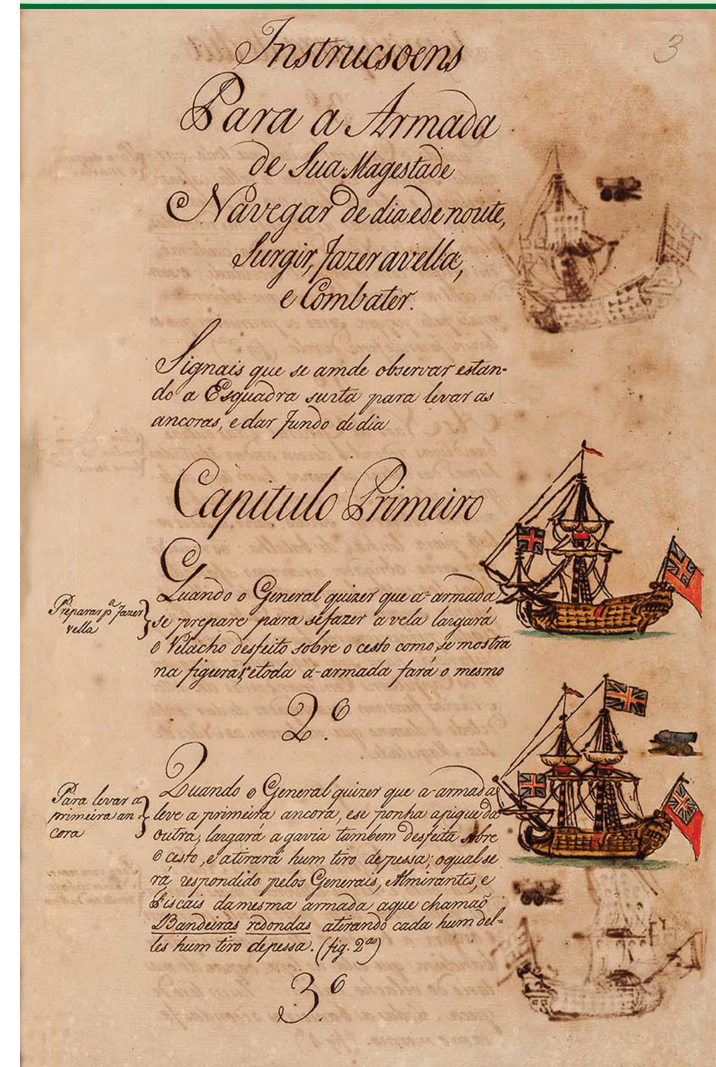 3
Instrucsoens
Para a Armada
de Sua Magestade
Navegar de dia e de noute,
Surgir, fazer a vella,
e Combater.
Signais que se amde observar estan-
do a Esquadra surta para levar as
ancoras, e dar fundo de dia
Capitulo Primeiro
Quando o General quizer que a-armada
Preparar pª fazer
vella
se prepare para sefazer a vela largará
o Velacho desfeito sobre o cesto como se mostra
na figura etoda a-armada fará o mesmo
2.º
Quando o General quizer que a-armada
Para levar a
primeira an
cora
leve a primeira ancora, ese ponha apique da
outra, largará a gavia tambem desfeita sobre
o cesto, e atirará hum tiro depessa; oqual se
rá respondido pelos Generais, Almirantes, e
Fiscais damesma armada aque chamaõ
Bandeiras redondas atirando cada hum del-
les hum tiro depessa. (fig. 2ª)
3.º